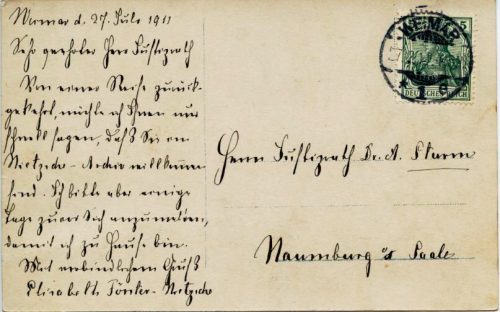 Weimar d. 27. Juli 1911
Sehr geehrter Herr Justizrath
Von einer Reise zurück-
gekehrt, möchte ich Ihnen nur
schnell sagen, daß Sie im
Nietzsche-Archiv willkommen
sind. Ich bitte aber einige
Tage zuvor Sich anzumelden,
damit ich zu Hause bin.
Mit verbindlichem Gruß
Elisabeth Förster-Nietzsche
WEIMAR
5
DEUTSCHES REICH
Herrn Justizrath Dr. A. Sturm
Naumburg a/d Saale